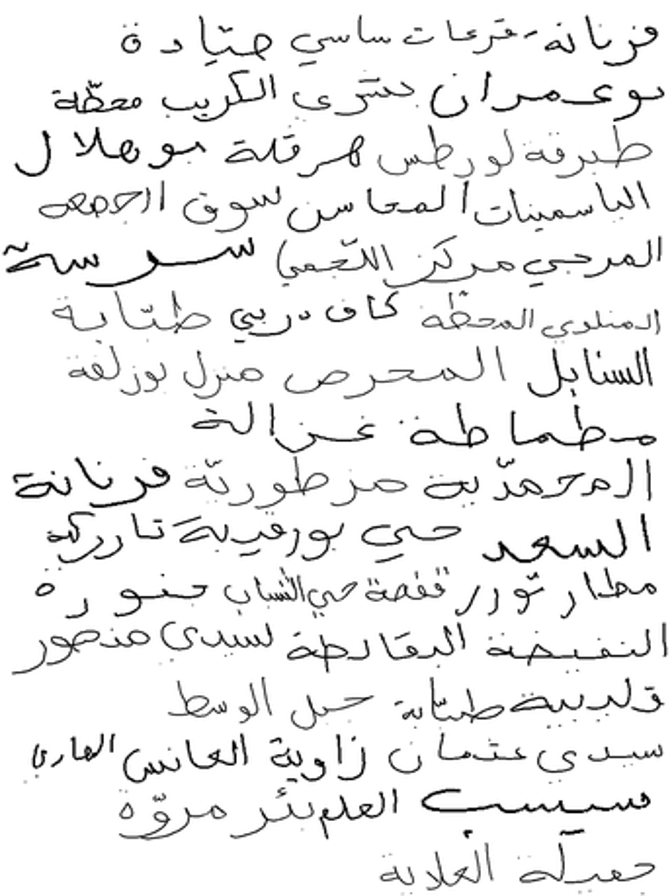 فرنانة قرعات ساسي صيّادة
بوعمران بشرى الكريب محطّة
طبرقة لورطس هرقلة بوهلال
الياسمينات المحاسن سوق الجمعة
المرجى مركز اللّجمي سرسة
المنلدي المحطّة كاف دربي طبّابة
السنابل المحرص منزل بوزلفة
مطماطة غزالة
المحمدّية مزطوريّة فرنانة
السعد حي بورقيبة تاركة
مطار توزر قفصة حي الشباب جنورة
النفيضة البقالطة لسيدى منصور
قليبية طبّابة جبل الوسط
سيدي عثمان زاوية العانس الهاري
سبيسب العلم بئر مروّة
جميلة العلاية